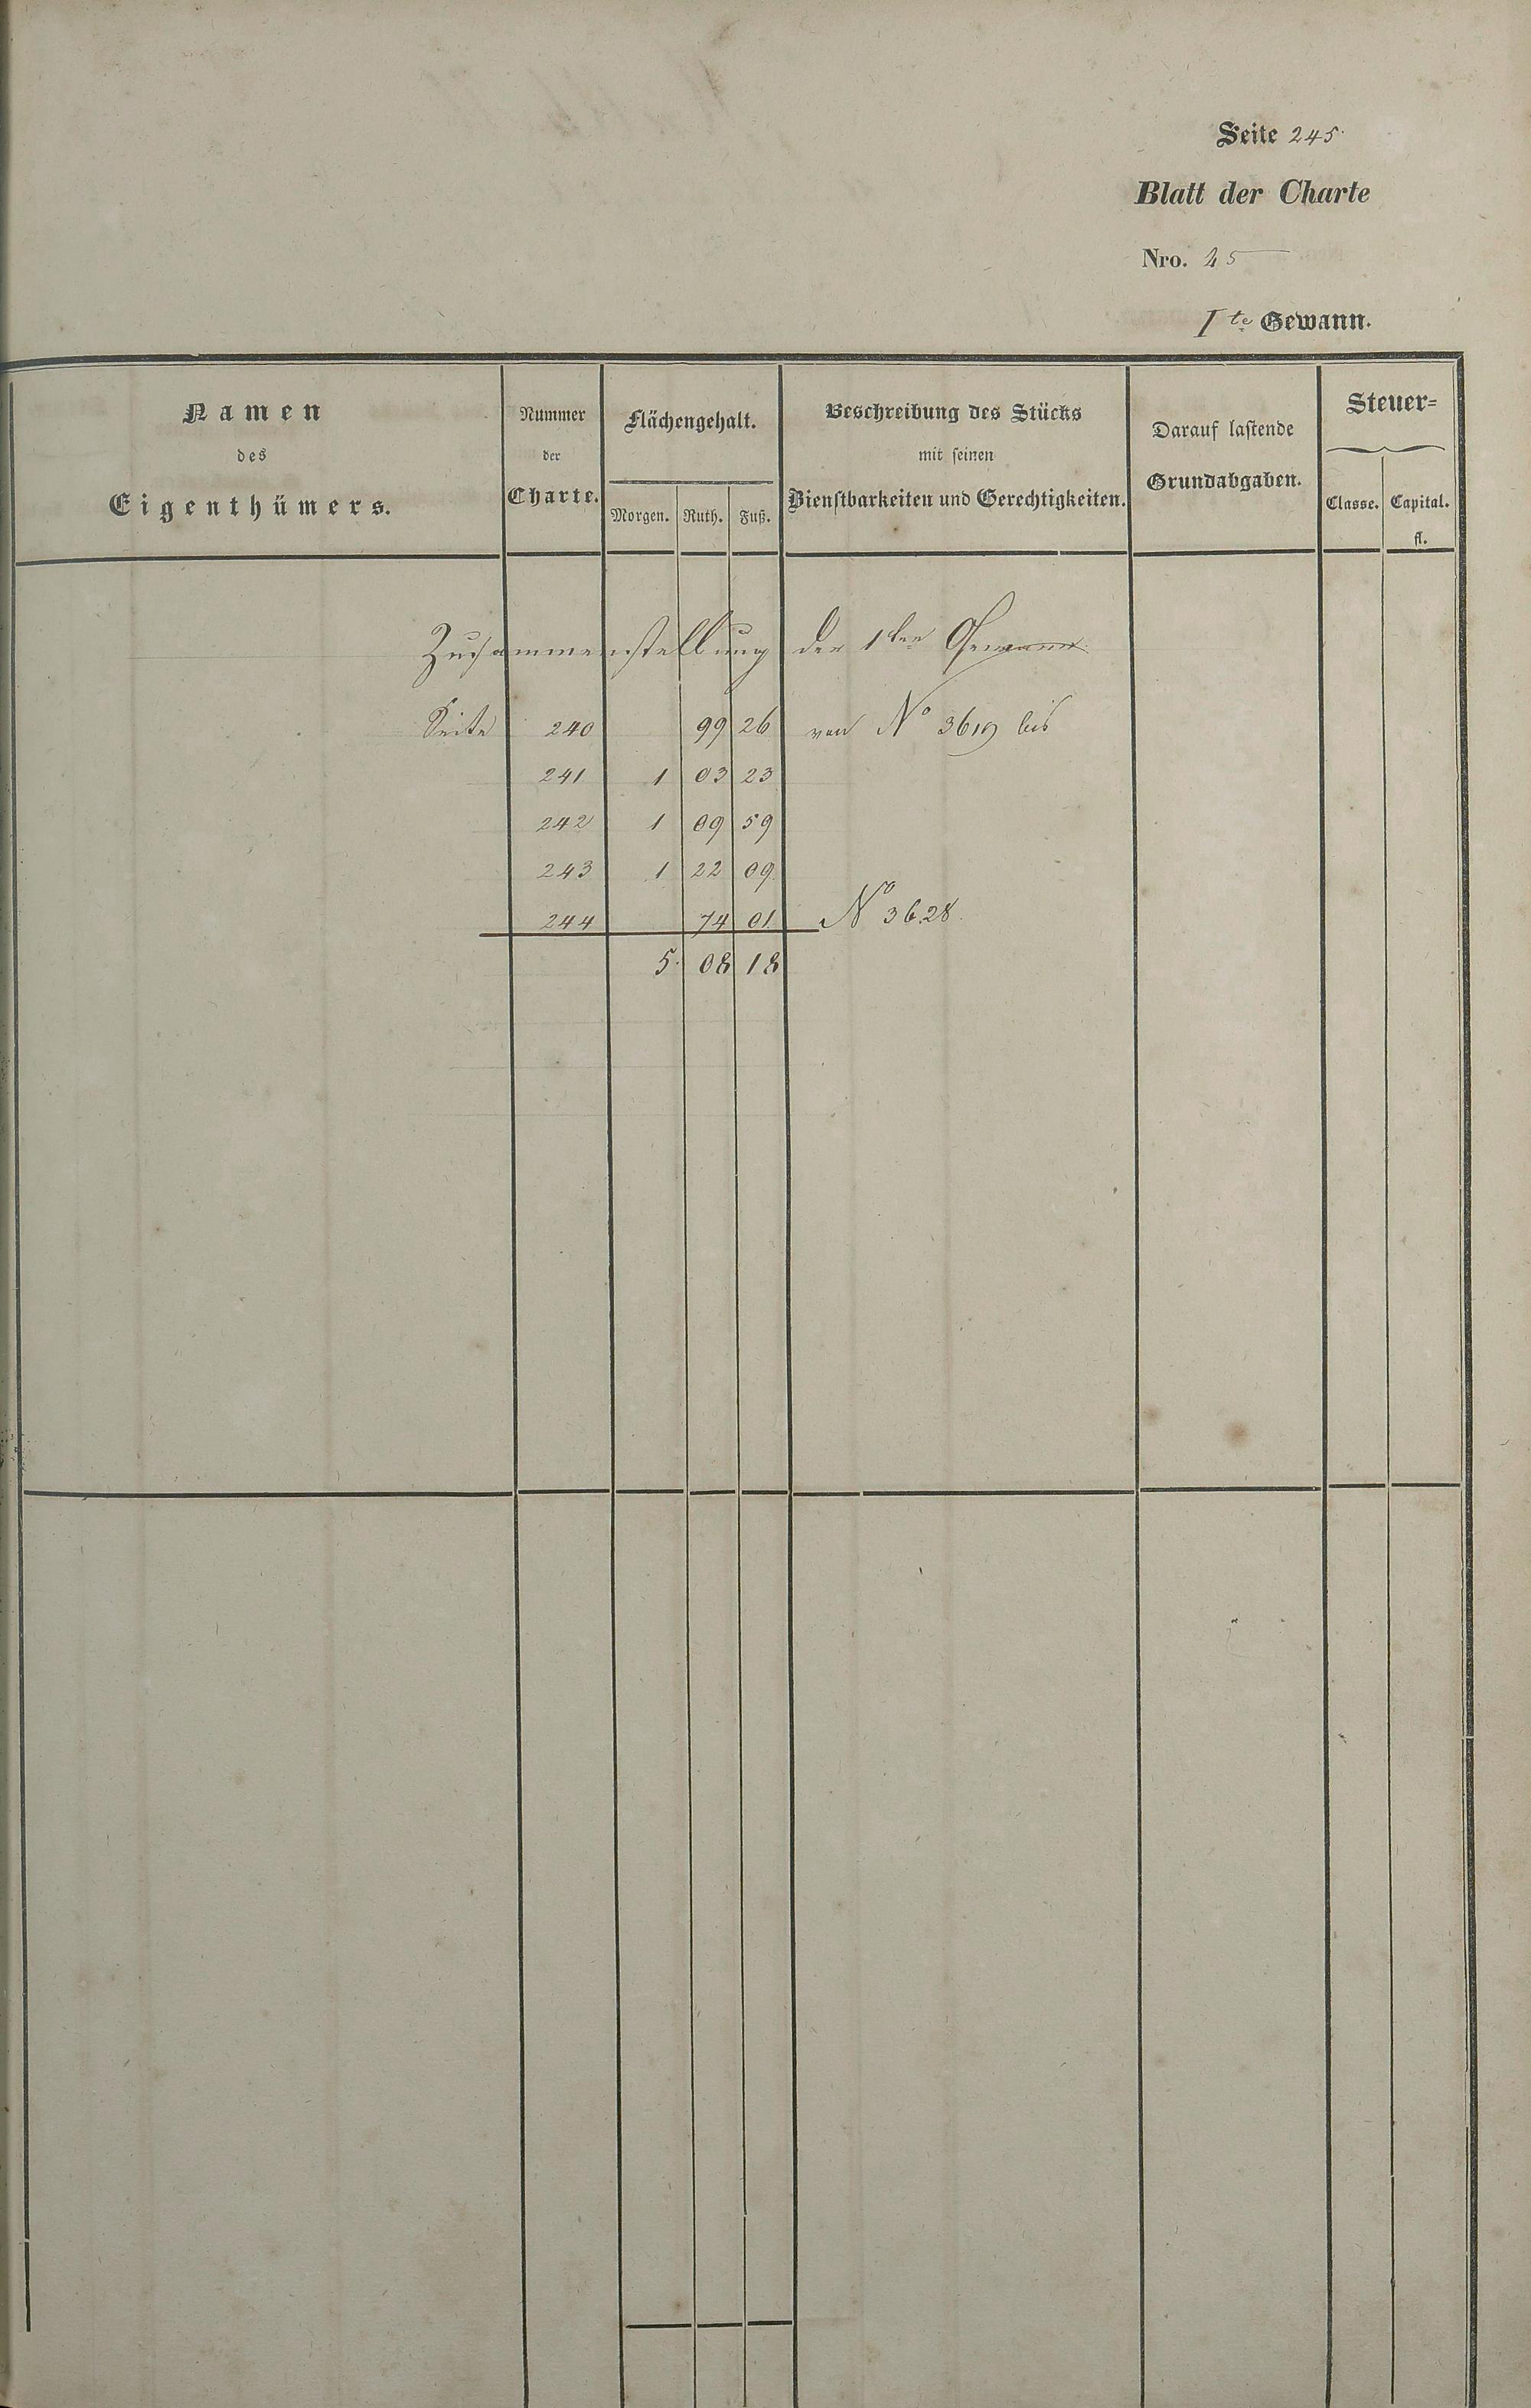 Seite 245.
Blatt der Charte
Nro. 25
Ite Gewann.
Namen des Eigenthümers.
Nummer der Charte.
Flächengehalt.
Morgen. Ruth. Fuß.
Beschreibung des Stücks mit seinen Dienstbarkeiten und Gerechtigkeiten.
Darauf lastende Grundabgaben.
Steuer=
Classe. Capital. fl.
Zusammenstellung der 1ten Gewann.
Seite 240 99 26 von No 3619 bis
241 1 03 23
242 1 09 59
243 1 22 09
244 74 01 No 3628.
5 08 18